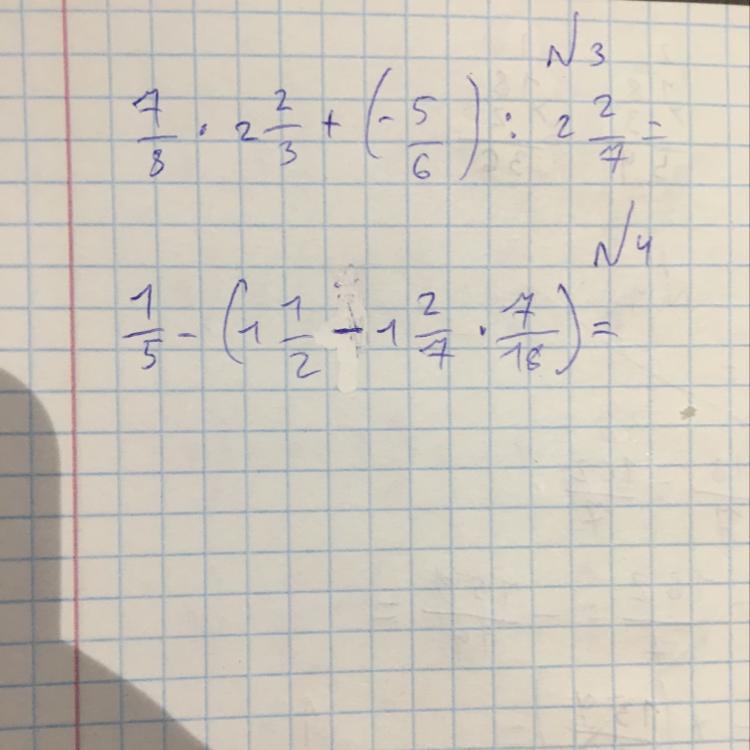 N3
7/8 · 2 2/3 + (- 5/6) : 2 2/7 =
N4
1/5 - (1 1/2 - 1 2/7 · 7/18) =